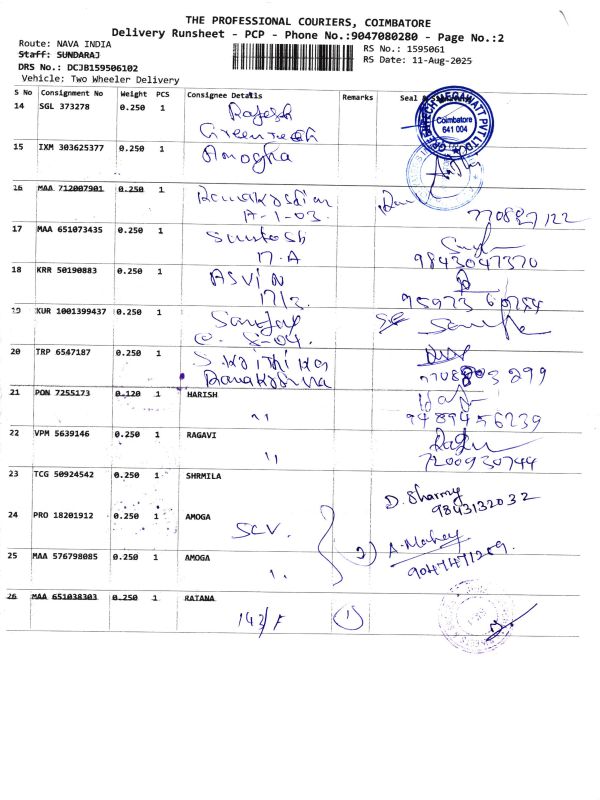 THE PROFESSIONAL COURIERS, COIMBATORE
Delivery Runsheet - PCP - Phone No.:9047080280 - Page No.:2
Route: NAVA INDIA
RS No.: 1595061
Staff: SUNDARAJ
RS Date: 11-Aug-2025
DRS No.: DCJB159506102
Vehicle: Two Wheeler Delivery
S No Consignment No Weight PCS Consignee Details Remarks Seal
14 SGL 373278 0.250 1 Rajesh
Greentech
GREENTECH MEGAWATT PVT LTD
Coimbatore
641 004
15 IXM 303625377 0.250 1 Amogha
16 MAA 712007901 0.250 1
A-1-03.
17 MAA 651073435 0.250 1 Santosh
17.A 9843047370
18 KRR 50190883 0.250 1 ASVIN
17/3.
19 KUR 1001399437 0.250 1 Sanjay
20 TRP 6547187 0.250 1
21 PON 7255173 0.120 1 HARISH
9489456239
22 VPM 5639146 0.250 1 RAGAVI
7200930744
23 TCG 50924542 0.250 1 SHRMILA
D. Sharmy
9843132032
24 PRO 18201912 0.250 1 AMOGA
SCV. 2) A. Mahey
9047471269.
25 MAA 576798085 0.250 1 AMOGA
26 MAA 651038303 0.250 1 RATANA
142/F 1